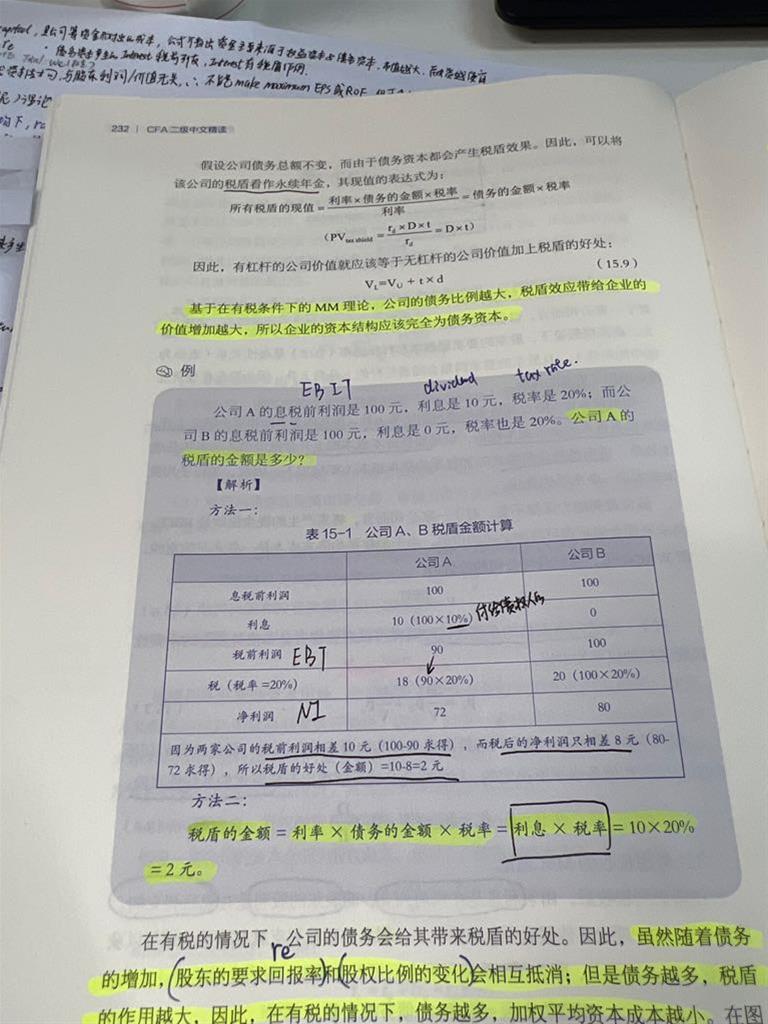 capital, 是公司筹资全付出的成本, 公式
re
债务资本产生的 Interest 税前列支, Interest 有税盾作用.
make maximum EPS 或 ROE
232 | CFA 二级中文精读
假设公司债务总额不变，而由于债务资本都会产生税盾效果。因此，可以将
该公司的税盾看作永续年金，其现值的表达式为：
所有税盾的现值=利率×债务的金额×税率/利率=债务的金额×税率
（PV tax shield = r_d×D×t/r_d = D×t）
因此，有杠杆的公司价值就应该等于无杠杆的公司价值加上税盾的好处：
V_L=V_U + t×d （15.9）
基于在有税条件下的 MM 理论，公司的债务比例越大，税盾效应带给企业的
价值增加越大，所以企业的资本结构应该完全为债务资本。
例
EBIT dividend tax rate.
公司 A 的息税前利润是 100 元，利息是 10 元，税率是 20%；而公
司 B 的息税前利润是 100 元，利息是 0 元，税率也是 20%。公司 A 的
税盾的金额是多少？
【解析】
方法一：
表 15-1 公司 A、B 税盾金额计算
公司 A 公司 B
息税前利润 100 100
利息 10（100×10%） 付给债权人 0
税前利润 EBT 90 100
税（税率=20%） 18（90×20%） 20（100×20%）
净利润 NI 72 80
因为两家公司的税前利润相差 10 元（100-90 求得），而税后的净利润只相差 8 元（80-
72 求得），所以税盾的好处（金额）=10-8=2 元
方法二：
税盾的金额 = 利率 × 债务的金额 × 税率 = 利息 × 税率 = 10×20%
= 2 元。
在有税的情况下，公司的债务会给其带来税盾的好处。因此，虽然随着债务
re
的增加，(股东的要求回报率)和(股权比例的变化)会相互抵消；但是债务越多，税盾
的作用越大，因此，在有税的情况下，债务越多，加权平均资本成本越小。在图